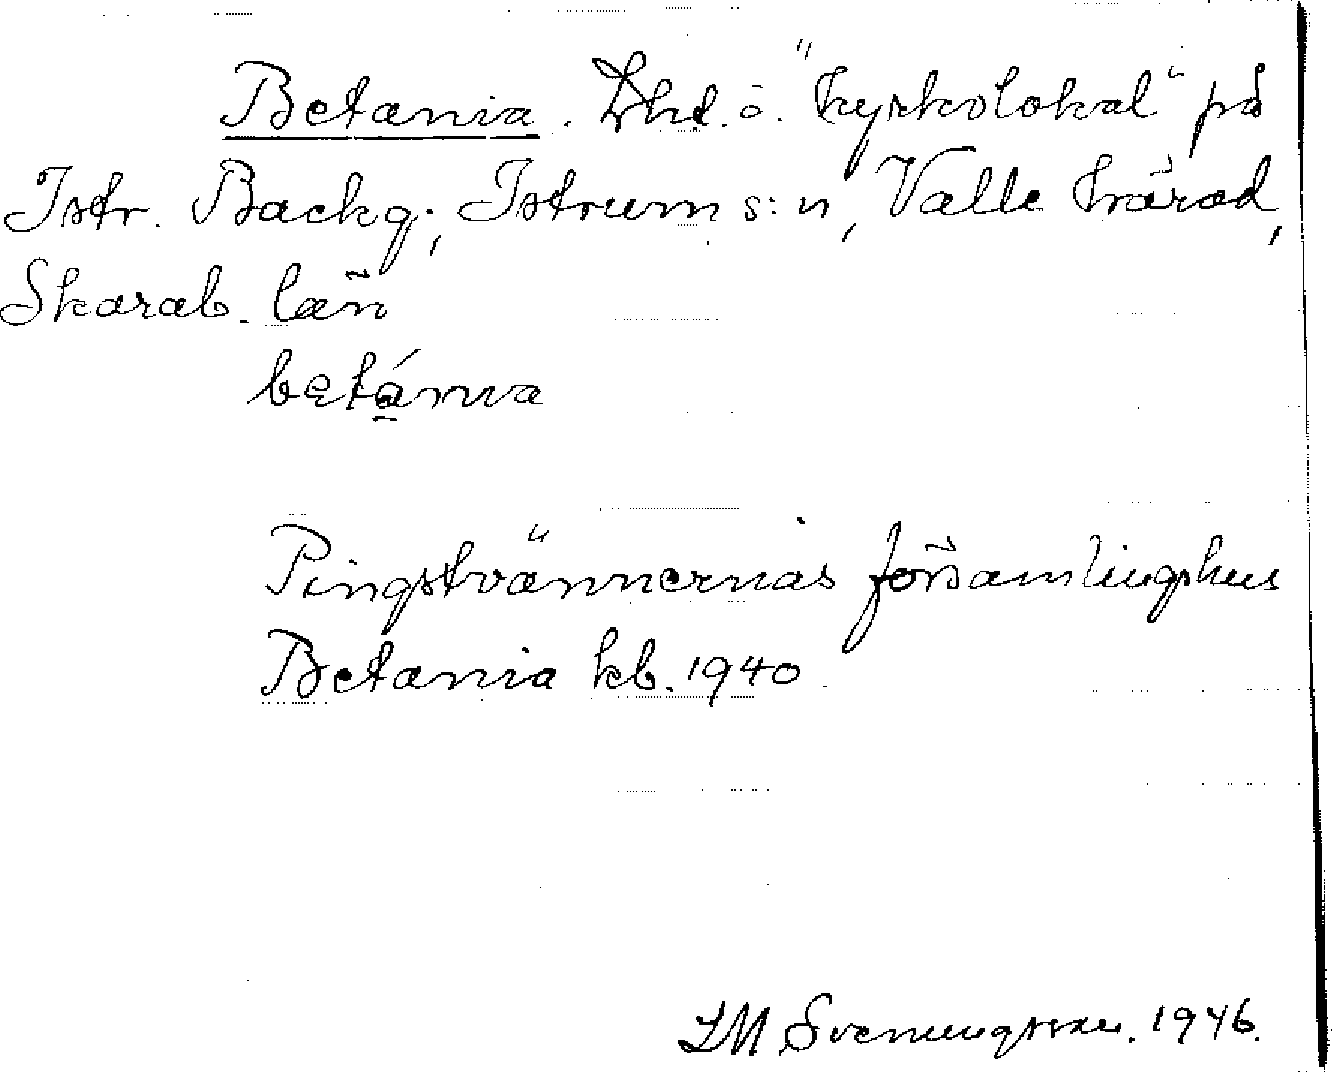 Betania. Lht. o. "kyrkolokal" på
Istr. Backg., Istrum s:n, Valle härad,
Skarab. län
betánia
Pingstvännernas församlingshus
Betania kb. 1940
SM Svenungsson. 1946.